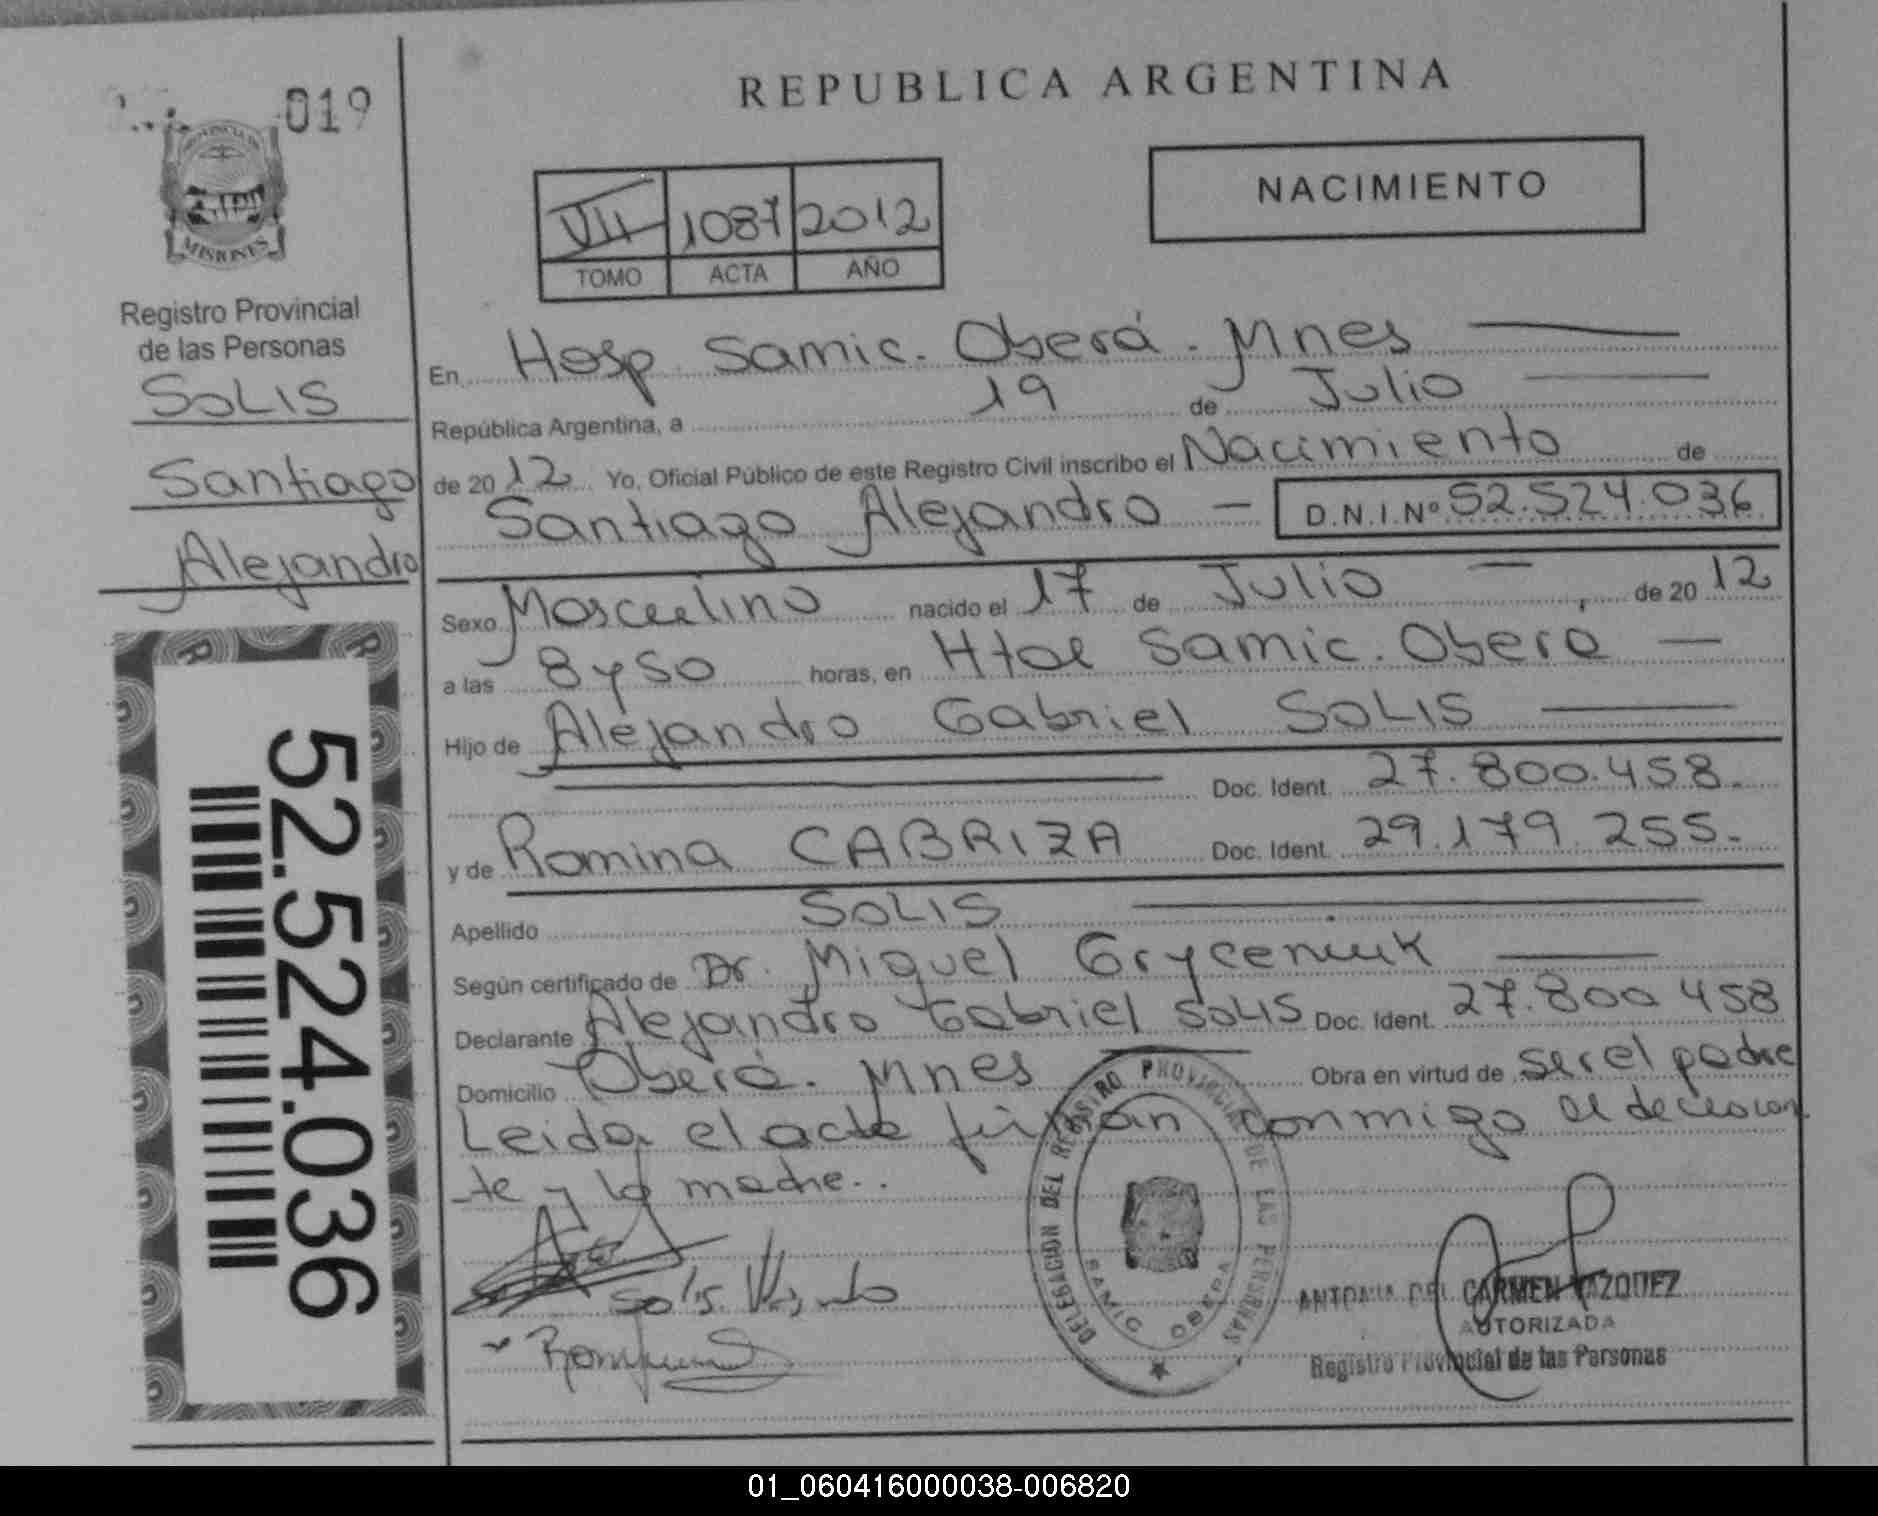 019
PROVINCIA DE
MISIONES
Registro Provincial
de las Personas
SOLIS
Santiago
Alejandro
52.524.036
REPUBLICA ARGENTINA
NACIMIENTO
VII 1087 2012
TOMO ACTA AÑO
En Hosp. Samic. Oberá. Mnes
República Argentina, a 19 de Julio
de 2012 Yo, Oficial Público de este Registro Civil inscribo el Nacimiento de
Santiago Alejandro - D.N.I.Nº 52.524.036
Sexo Masculino nacido el 17 de Julio, de 2012
a las 8 y 50 horas, en Htal Samic. Obera
Hijo de Alejandro Gabriel SOLIS
Doc. Ident. 27.800.458.
y de Romina CABRIZA Doc. Ident. 29.179.255.
Apellido SOLIS
Según certificado de Dr. Miguel
Declarante Alejandro Gabriel SOLIS Doc. Ident. 27.800 458
Domicilio Oberá. Mnes Obra en virtud de ser el padre
Leida el acta firman conmigo el declaran
te y la madre..
Solis
DELEGACION DEL REGISTRO PROVINCIAL DE LAS PERSONAS
SAMIC OBERA
ANTONIA DEL CARMEN VAZQUEZ
AUTORIZADA
Registro Provincial de las Personas
01_060416000038-006820